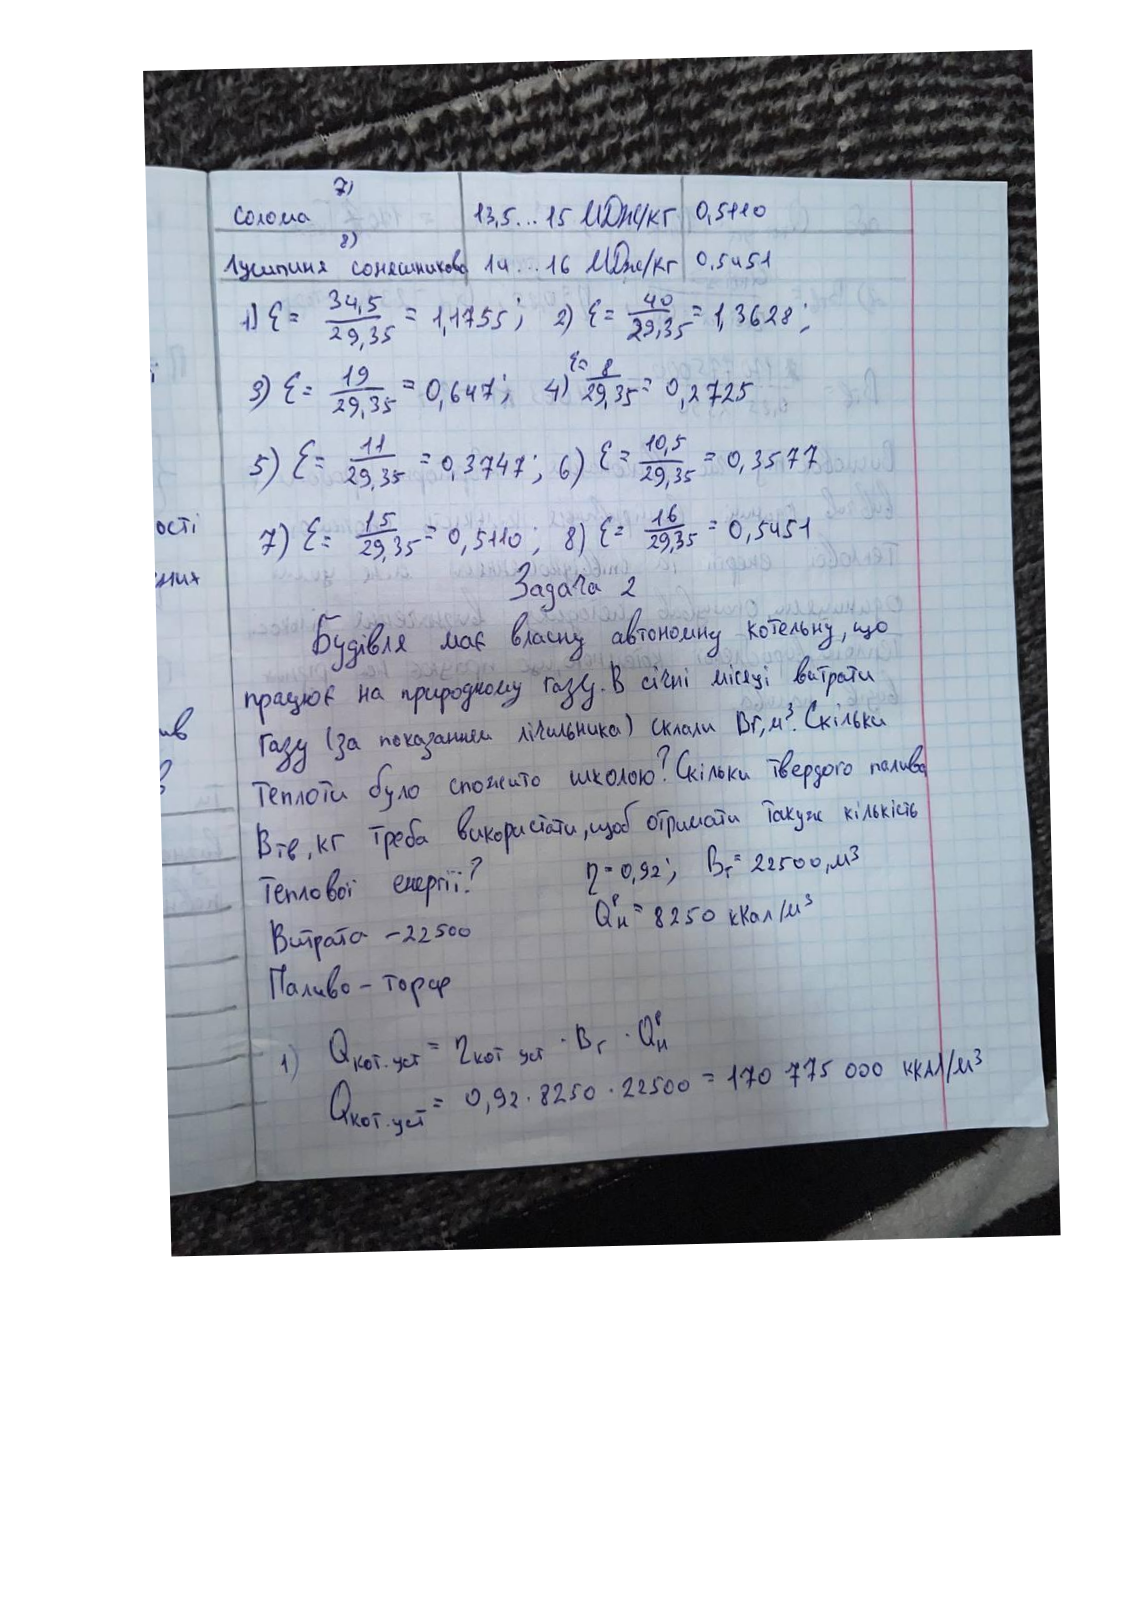 7)
Солома 13,5...15 МДж/кг 0,5110
8)
Лушпиння соняшникове 14...16 МДж/кг 0,5451
1) Ɛ = 34,5/29,35 = 1,1755; 2) Ɛ = 40/29,35 = 1,3628;
3) Ɛ = 19/29,35 = 0,647; 4) Ɛ = 8/29,35 = 0,2725
5) Ɛ = 11/29,35 = 0,3747; 6) Ɛ = 10,5/29,35 = 0,3577
7) Ɛ = 15/29,35 = 0,5110; 8) Ɛ = 16/29,35 = 0,5451
Задача 2
Будівля має власну автономну котельну, що
працює на природному газу. В січні місяці витрати
газу (за показанням лічильника) склали Вг, м³. Скільки
теплоти було спожито школою? Скільки твердого палива
Втв, кг треба використати, щоб отримати таку ж кількість
теплової енергії? η = 0,92; Вг = 22500, м³
Витрата - 22500 Qᴾн = 8250 кКал/м³
Паливо - торф
1) Qкот.уст = ηкот уст · Вг · Qᴾн
Qкот.уст = 0,92 · 8250 · 22500 = 170 775 000 ккал/м³
ості
них
ив
в